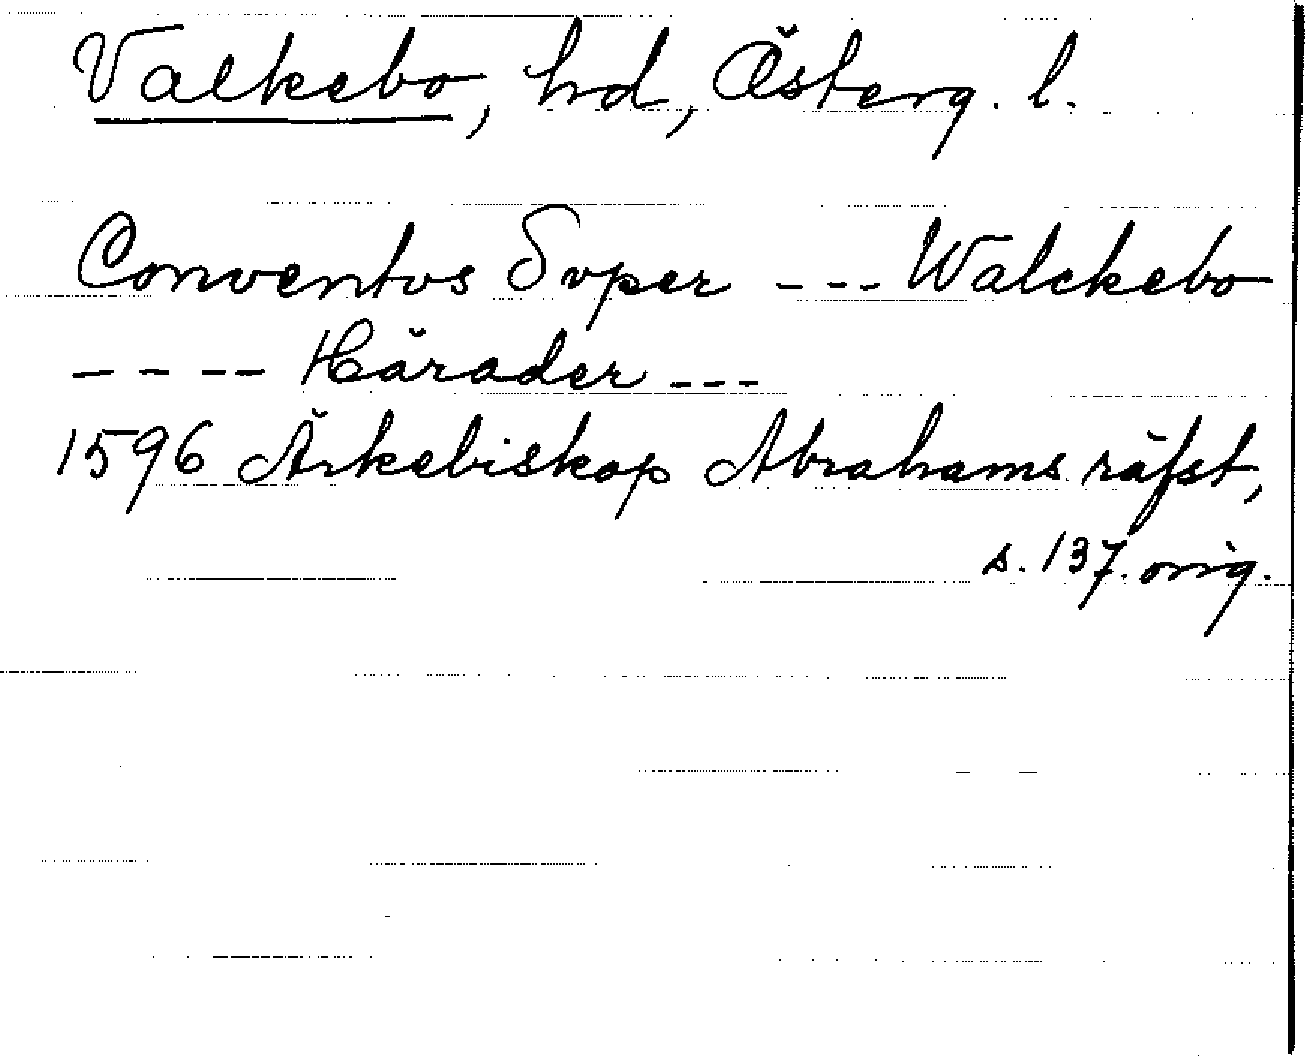 Valkebo, hd, Österg. l.
Conventus Super --- Walckebo
---- Härader ---
1596 Ärkebiskop Abrahams räfst,
s. 137. orig.